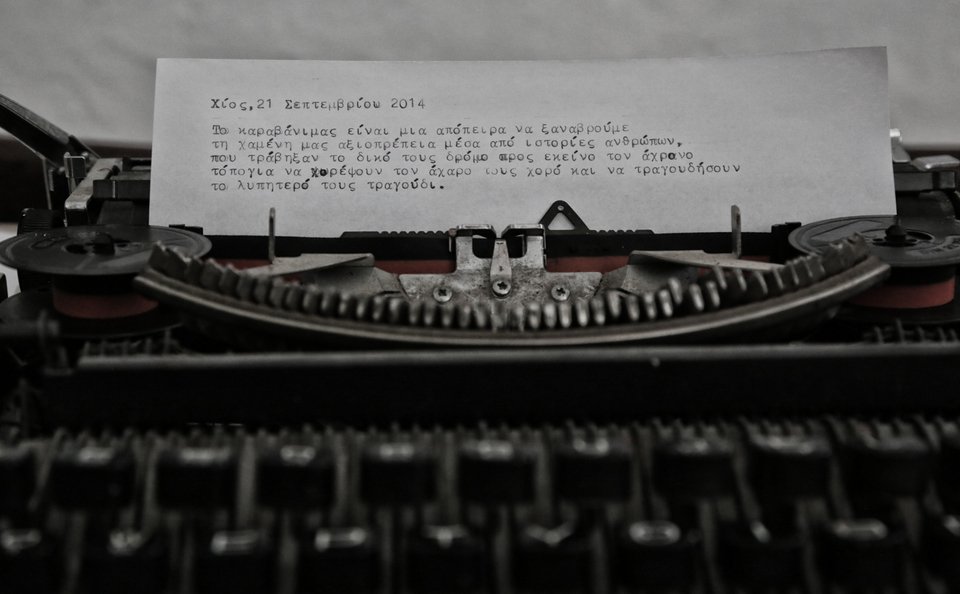 Χίος,21 Σεπτεμβρίου 2014
Το καραβάνιμας είναι μια απόπειρα να ξαναβρούμε
τη χαμένη μας αξιοπρέπεια μέσα από ιστορίες ανθρώπων,
που τράβηξαν το δικό τους δρόμο προς εκείνο τον άχρανο
τόπογια να χορέψουν τον άχαρο τους χορό και να τραγουδήσουν
το λυπητερό τους τραγούδι.